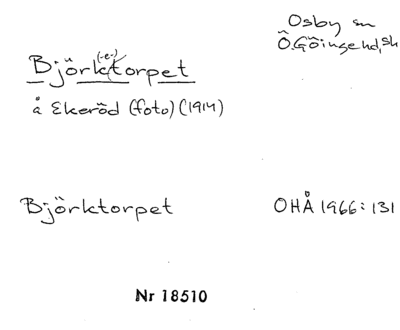 Osby sn
Ö. Göinge hd, sk
(-e-)
Björktorpet
å Ekeröd (foto) (1914)
Björktorpet OHÅ 1966: 131
Nr 18510